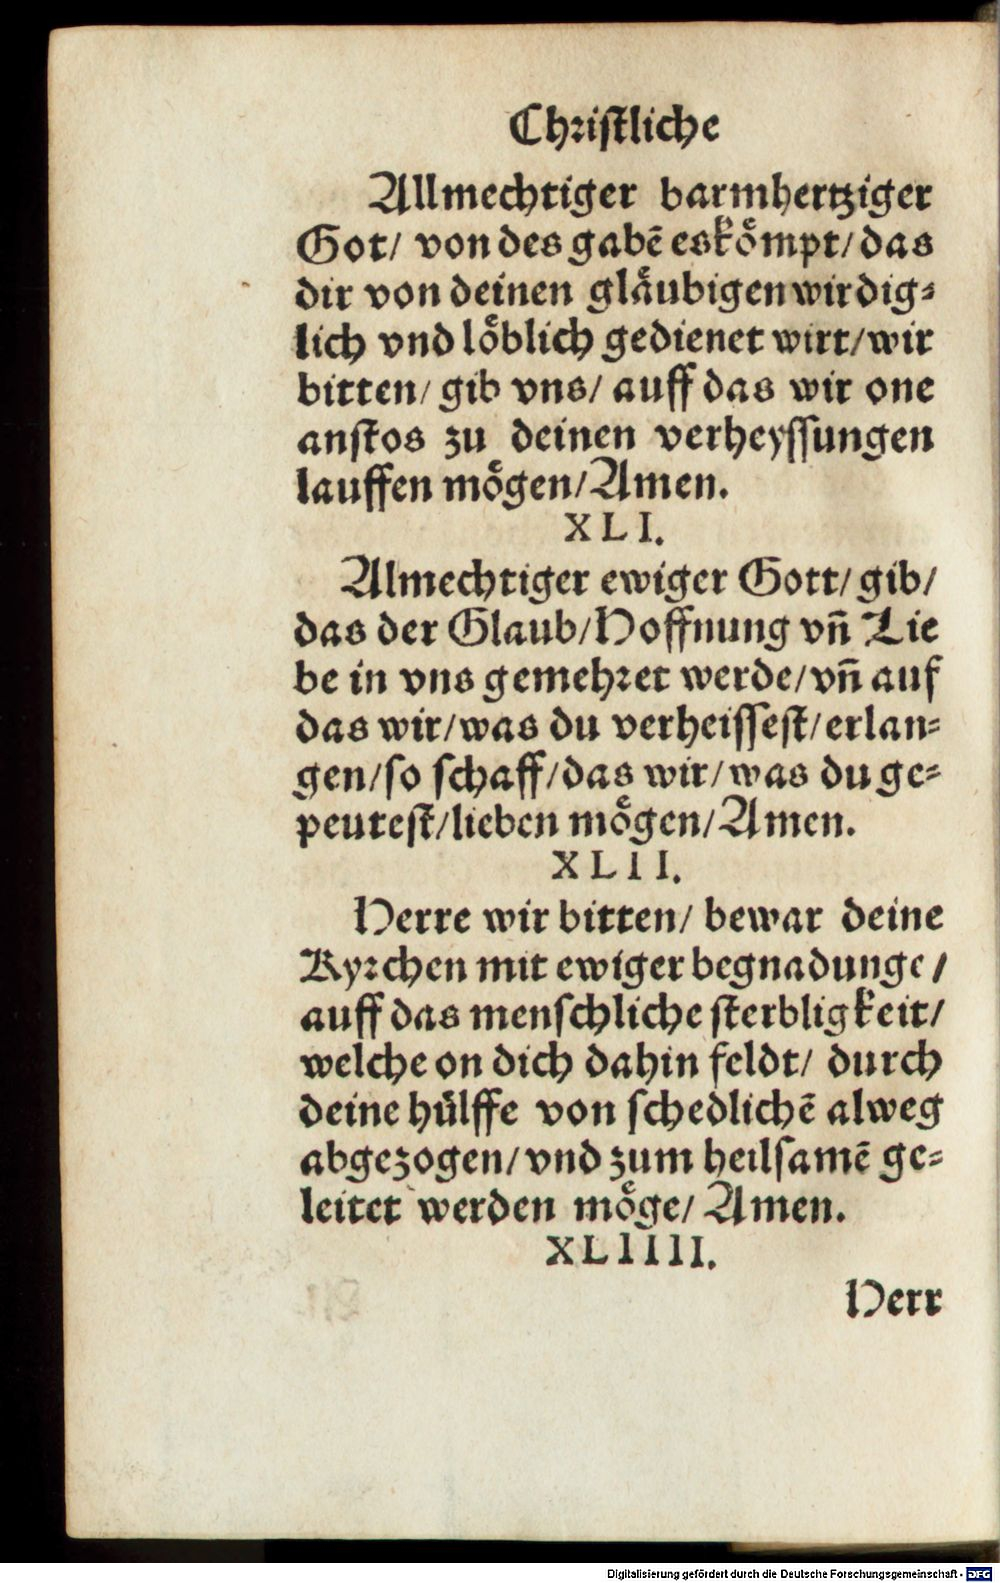 Christliche
Allmechtiger barmhertziger
Got/ von des gabē es kömpt/ das
dir von deinen gläubigen wirdig⸗
lich vnd löblich gedienet wirt/ wir
bitten/ gib vns/ auff das wir one
anstos zu deinen verheyssungen
lauffen mögen/ Amen.
XLI.
Almechtiger ewiger Gott/ gib/
das der Glaub/ Hoffnung vn̄ Lie
be in vns gemehret werde/ vn̄ auf
das wir/ was du verheissest/ erlan⸗
gen/ so schaff/ das wir/ was du ge⸗
peutest/ lieben mögen/ Amen.
XLII.
Herre wir bitten/ bewar deine
Kyrchen mit ewiger begnadunge/
auff das menschliche sterbligkeit/
welche on dich dahin feldt/ durch
deine hülffe von schedlichē alweg
abgezogen/ vnd zum heilsamē ge⸗
leitet werden möge/ Amen.
XLIIII.
Herr
Digitalisierung gefördert durch die Deutsche Forschungsgemeinschaft - DFG